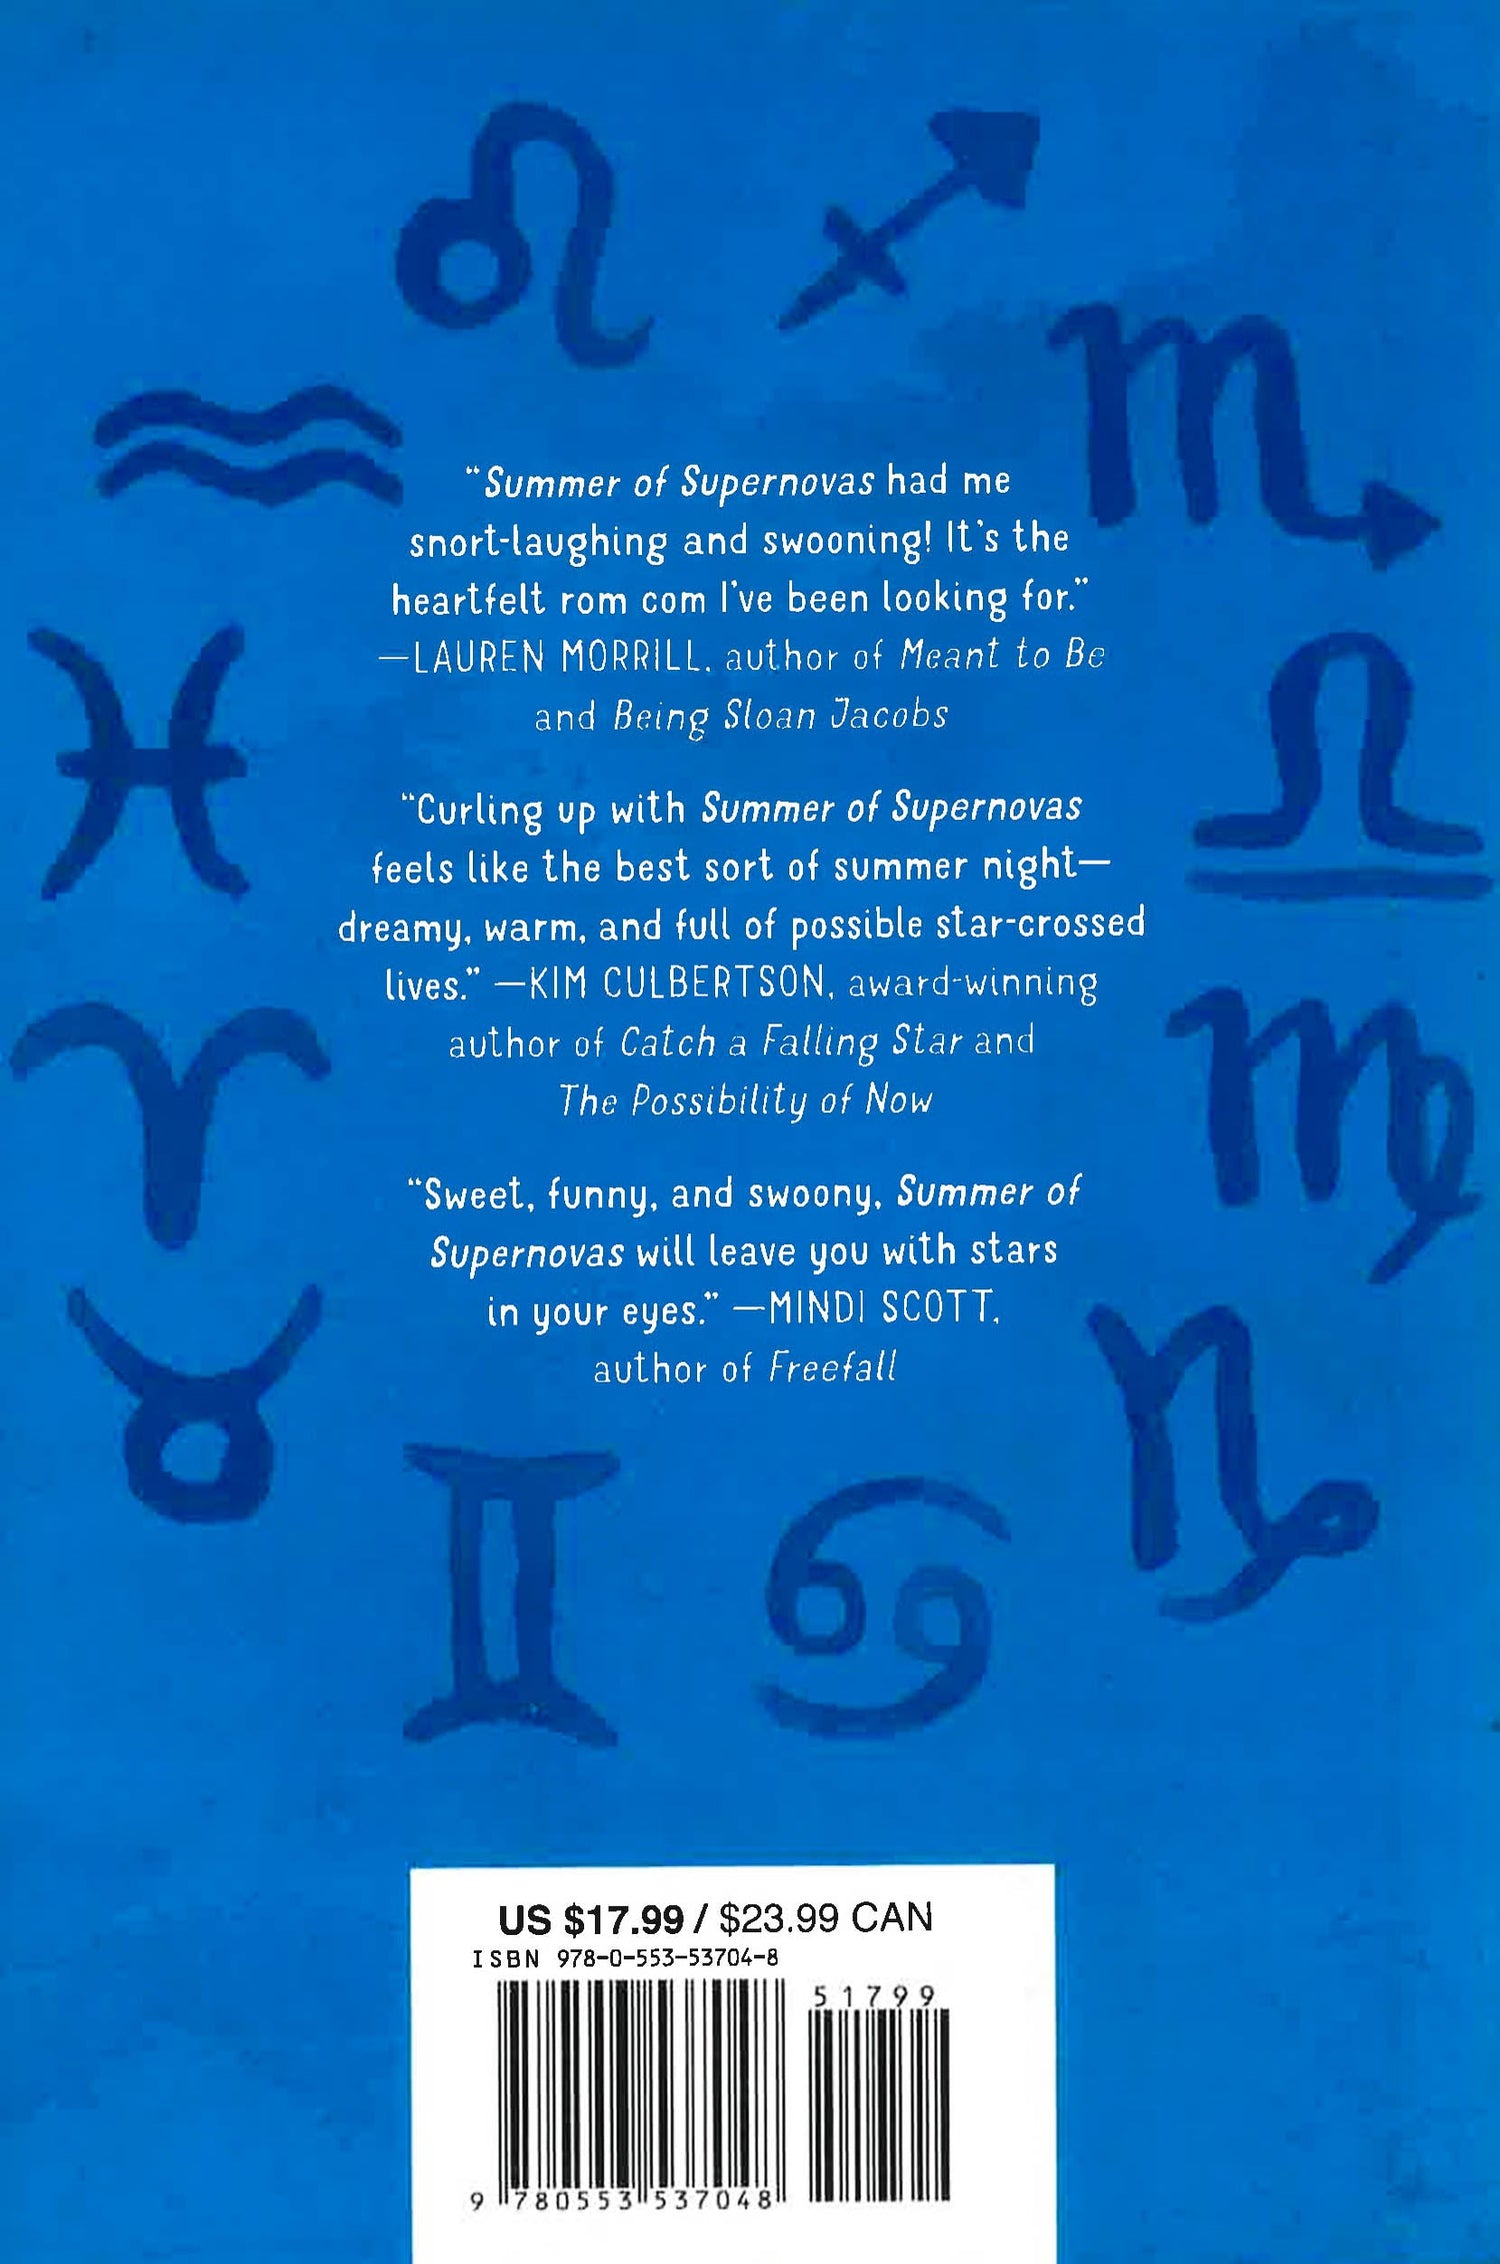 “Summer of Supernovas had me
snort-laughing and swooning! It’s the
heartfelt rom com I’ve been looking for.”
—LAUREN MORRILL, author of Meant to Be
and Being Sloan Jacobs
“Curling up with Summer of Supernovas
feels like the best sort of summer night—
dreamy, warm, and full of possible star-crossed
lives.” —KIM CULBERTSON, award-winning
author of Catch a Falling Star and
The Possibility of Now
“Sweet, funny, and swoony, Summer of
Supernovas will leave you with stars
in your eyes.” —MINDI SCOTT,
author of Freefall
US $17.99 / $23.99 CAN
ISBN 978-0-553-53704-8
51799
9 780553 537048